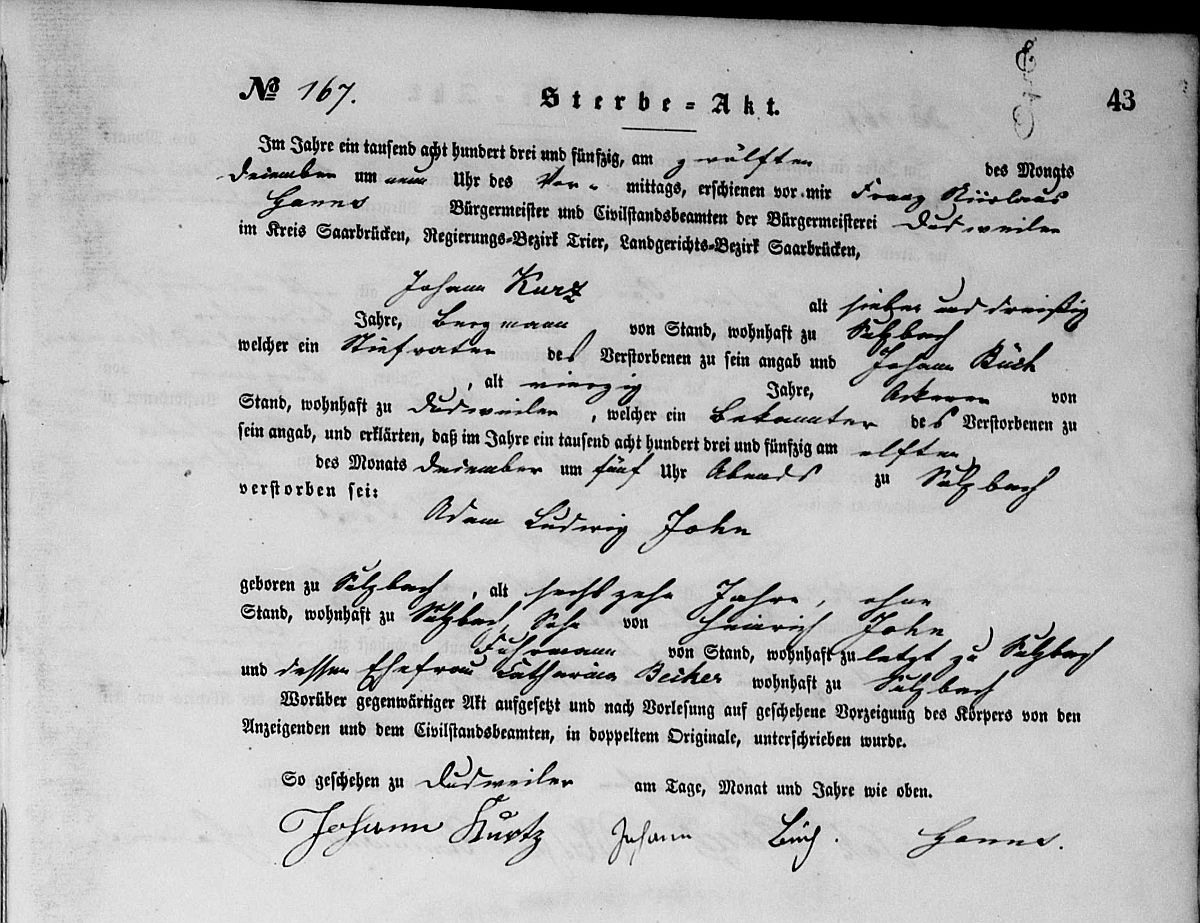 № 167. Sterbe-Akt. 43
Im Jahre ein tausend acht hundert drei und fünfzig, am zwölften des Monats
Dezember um neun Uhr des Vor- mittags, erschienen vor mir Franz Nicolaus
Hanns Bürgermeister und Civilstandsbeamten der Bürgermeisterei Dudweiler
im Kreis Saarbrücken, Regierungs-Bezirk Trier, Landgerichts-Bezirk Saarbrücken,
Johann Kurtz alt sieben und dreißig
Jahre, Bergmann von Stand, wohnhaft zu Sulzbach
welcher ein Stiefvater des Verstorbenen zu sein angab und Johann Büch
, alt vierzig Jahre, Ackerer von
Stand, wohnhaft zu Dudweiler, welcher ein Bekannter des Verstorbenen zu
sein angab, und erklärten, daß im Jahre ein tausend acht hundert drei und fünfzig am elften
des Monats Dezember um fünf Uhr Abends zu Sulzbach
verstorben sei:
Adam Ludwig John
geboren zu Sulzbach, alt sechszehn Jahre, ohne
Stand, wohnhaft zu Sulzbach, Sohn von Heinrich John,
Fuhrmann von Stand, wohnhaft zuletzt zu Sulzbach
und dessen Ehefrau Catharina Becker wohnhaft zu Sulzbach
Worüber gegenwärtiger Akt aufgesetzt und nach Vorlesung auf geschehene Vorzeigung des Körpers von den
Anzeigenden und dem Civilstandsbeamten, in doppeltem Originale, unterschrieben wurde.
So geschehen zu Dudweiler am Tage, Monat und Jahre wie oben.
Johann Kurtz Johann Büch. Hanns.